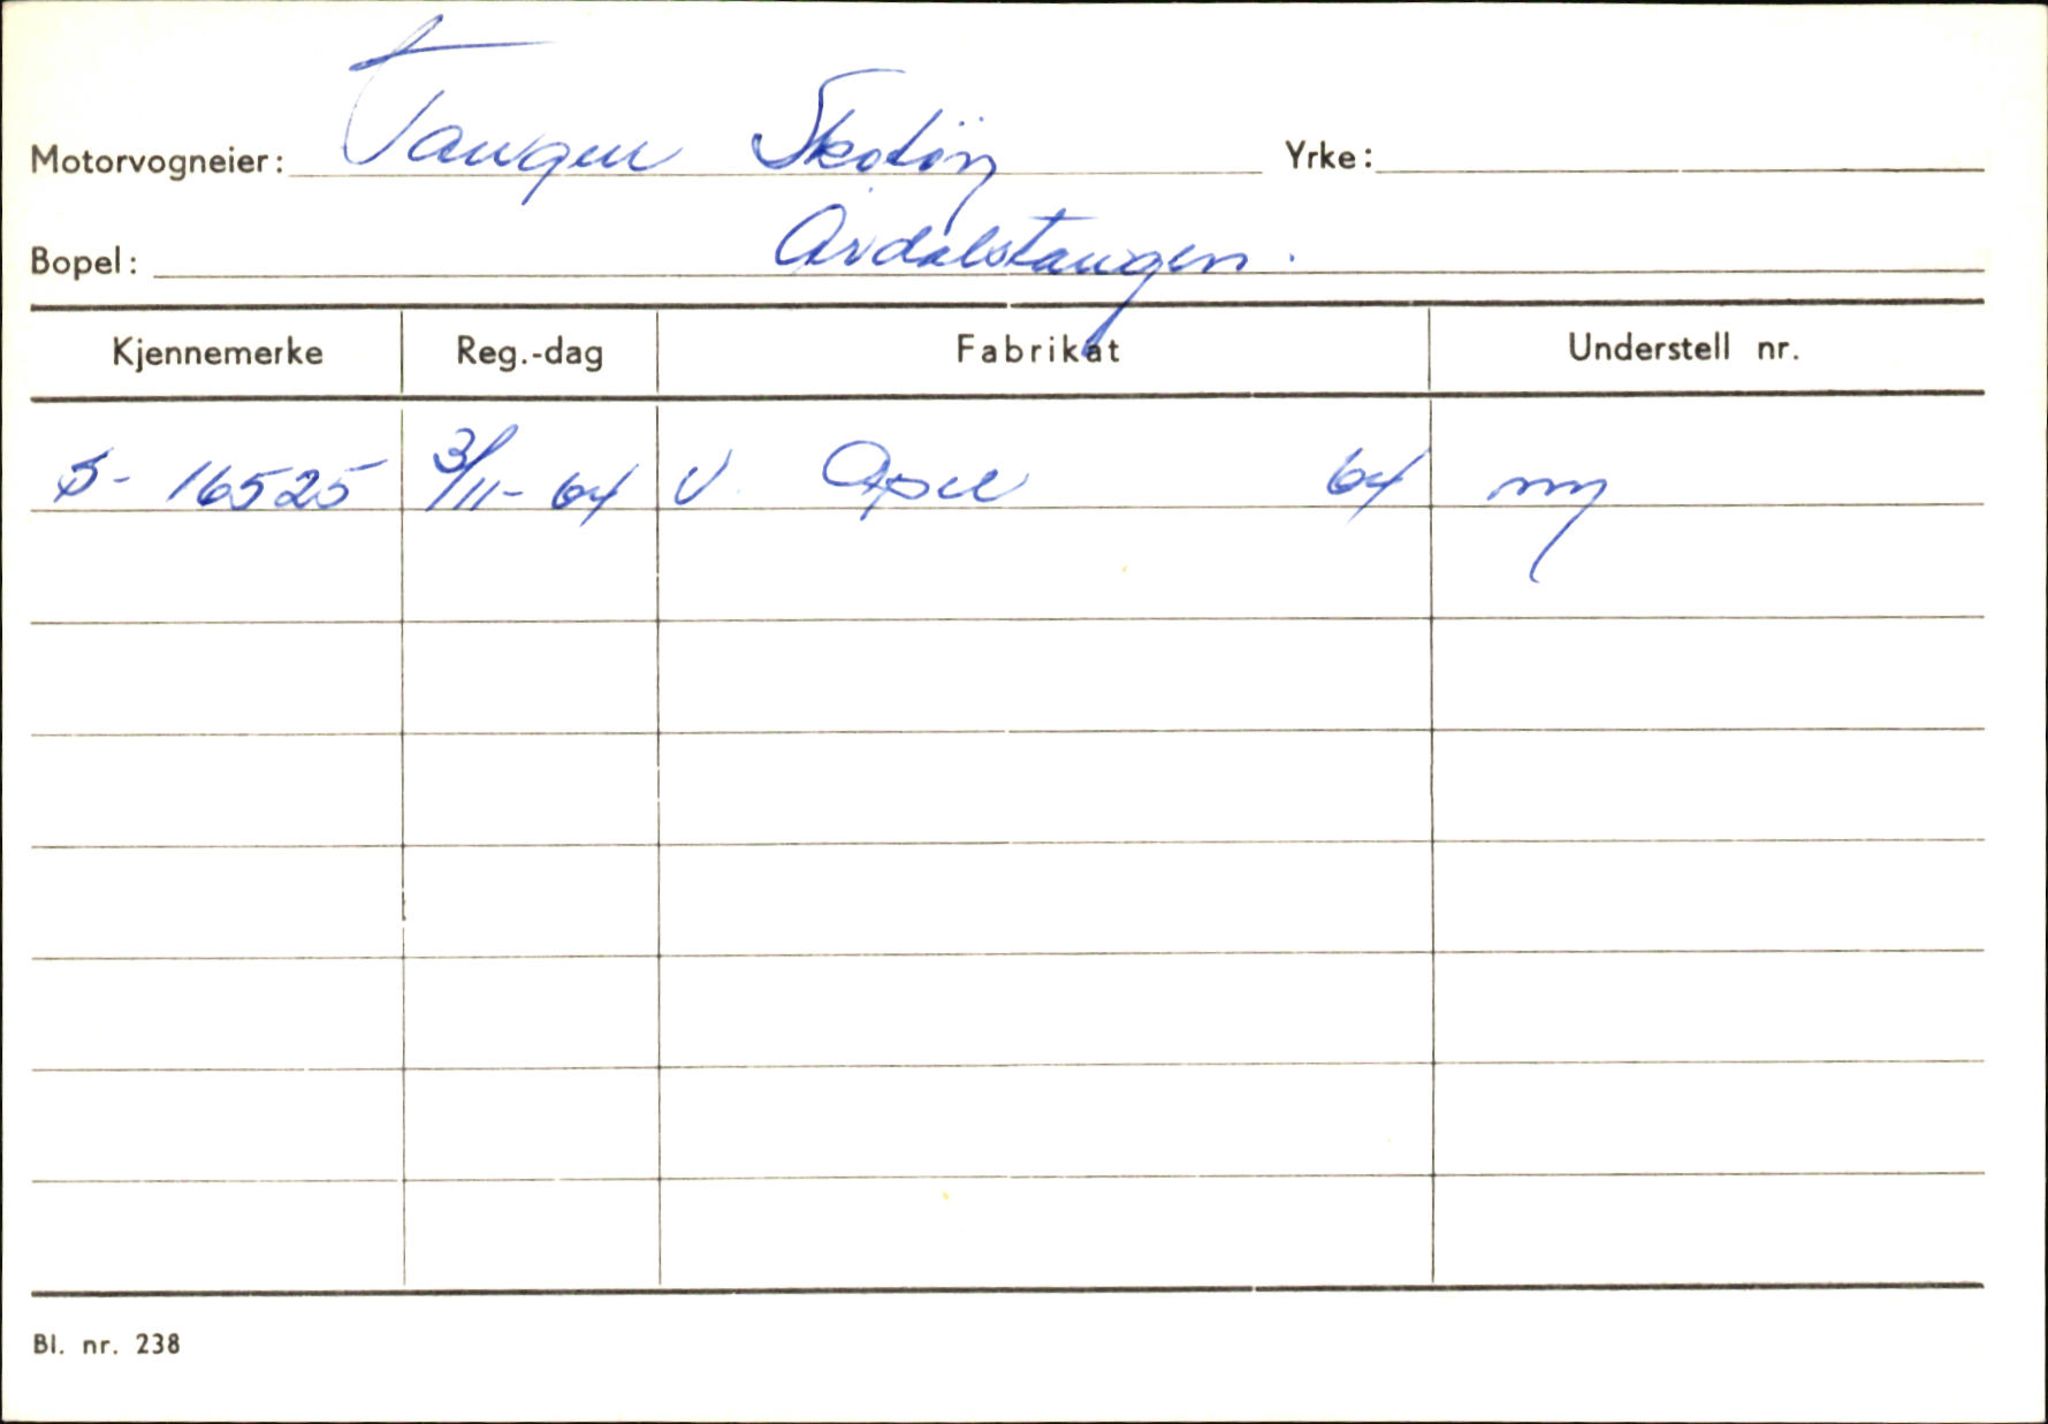 Motorvogneier: Tangen Skotöy Yrke:
Bopel: Årdalstangen.
Kjennemerke Reg.-dag Fabrikat Understell nr.
S- 16525 3/11-64 V. Opel 64 ny
Bl. nr. 238